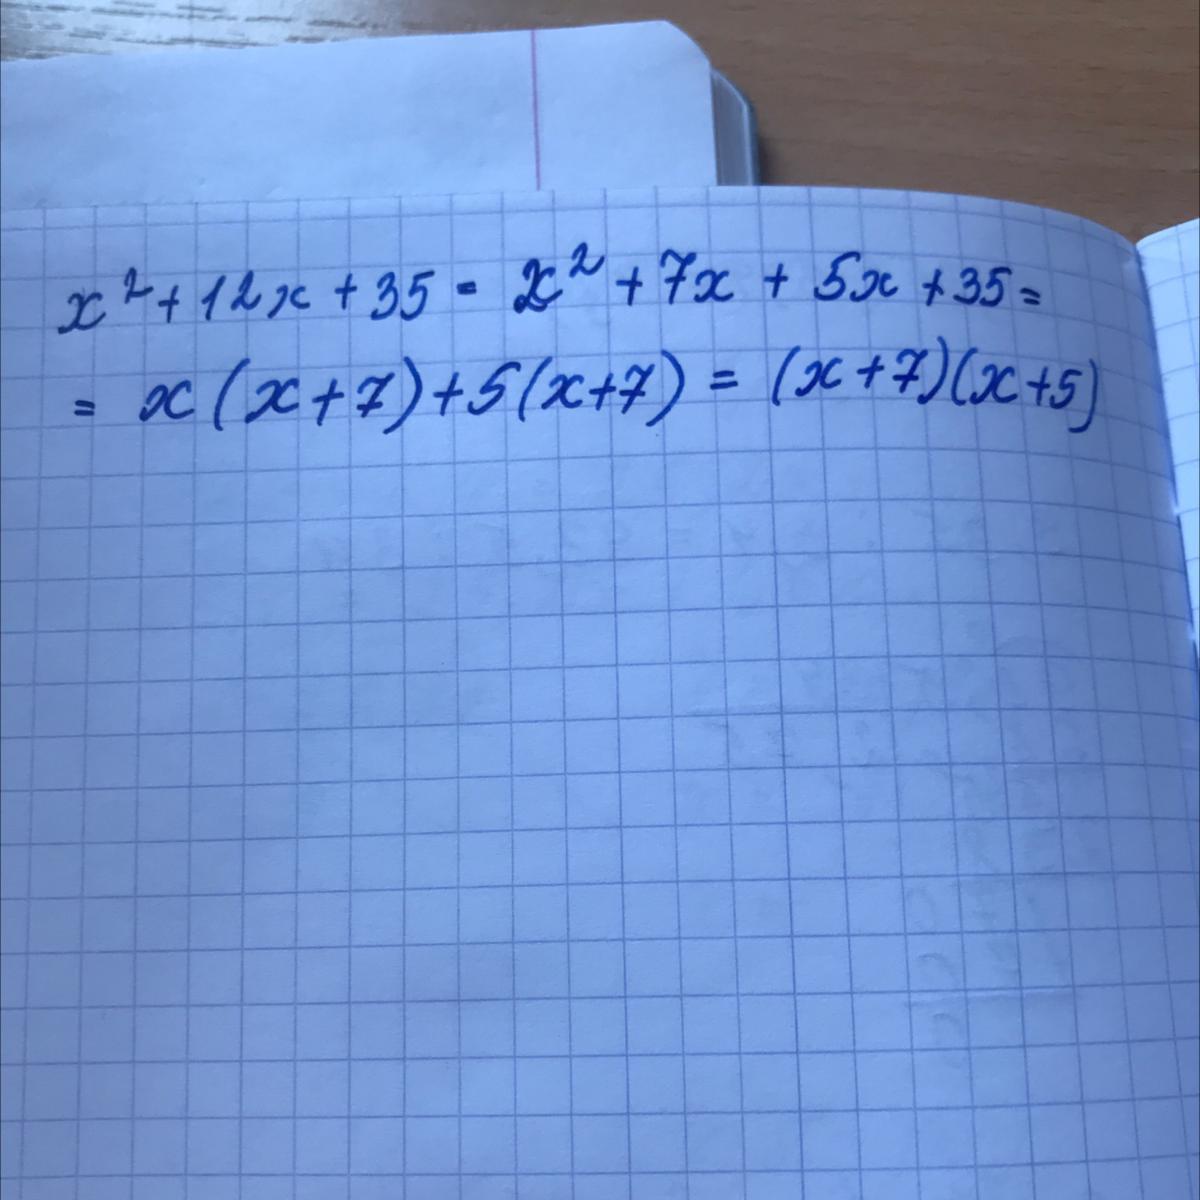 x² + 12x + 35 = x² + 7x + 5x + 35 =
= x(x+7)+5(x+7) = (x+7)(x+5)